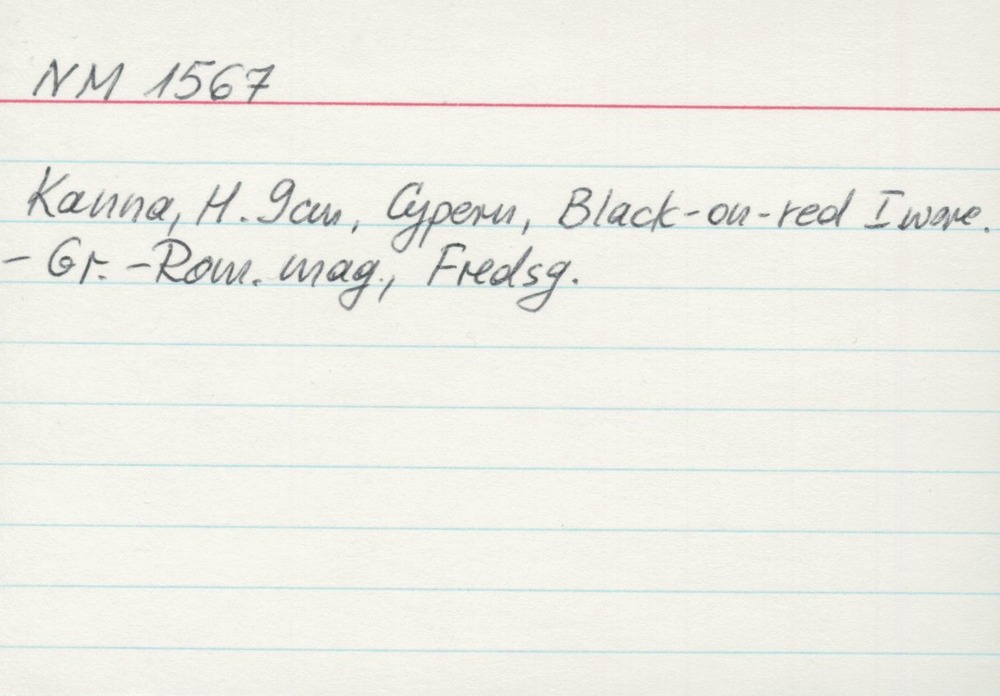 NM 1567
Kanna, H. 9cm, Cypern, Black-on-red I ware.
- Gr. - Rom. mag., Fredsg.